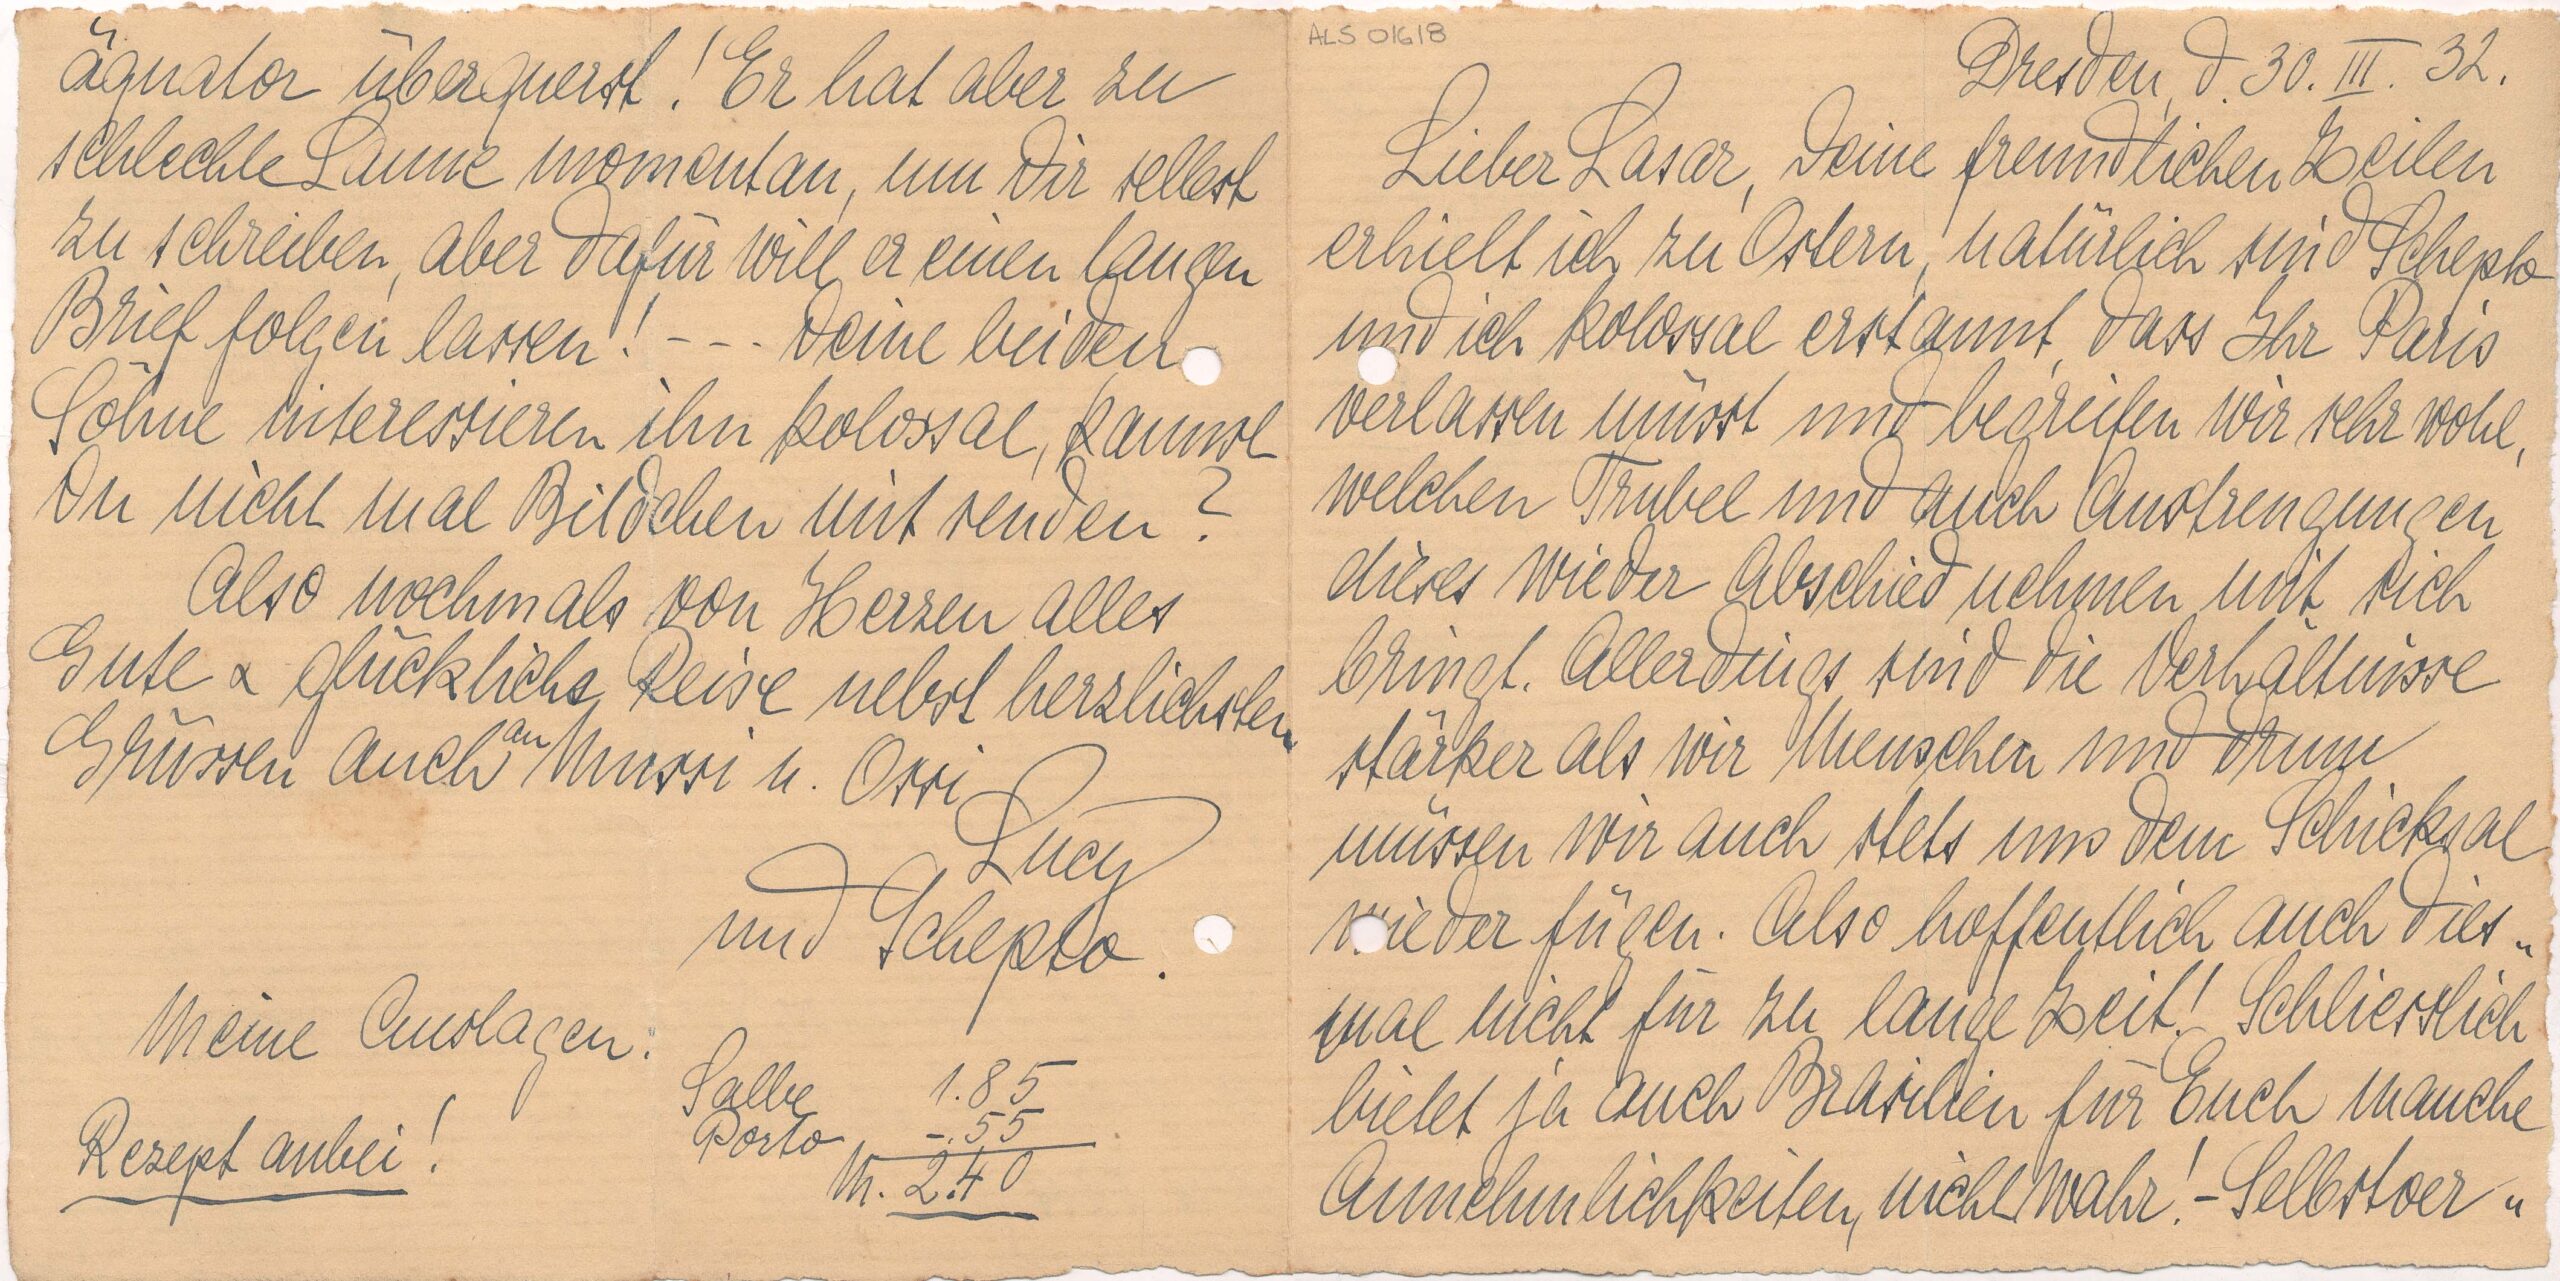 ALS 01618
Dresden, d. 30. III. 32.
Lieber Lasar, Deine freundlichen Zeilen
erhielt ich zu Ostern, natürlich sind Schepko
und ich kolossal erstaunt, dass Ihr Paris
verlassen müsst und begreifen wir sehr wohl,
welchen Trubel und auch Anstrengungen
dieses wieder Abschied nehmen mit sich
bringt. Allerdings sind die Verhältnisse
stärker als wir Menschen und drum
müssen wir auch stets uns dem Schicksal
wieder fügen. Also hoffentlich auch dies„
mal nicht für zu lange Zeit! Schliesslich
bietet ja auch Brasilien für Euch manche
Annehmlichkeiten, nicht wahr! - Selbstver„
äquator überquerst! Er hat aber zu
schlechte Laune momentan, um Dir selbst
zu schreiben, aber dafür will er einen langen
Brief folgen lassen! - - - Deine beiden
Söhne interessieren ihn kolossal, kannst
Du nicht mal Bildchen mit senden?
Also nochmals von Herzen alles
Gute & glückliche Reise nebst herzlichsten
Grüssen auch an Mussi u. Ossi
Lucy
und Schepko.
Meine Auslagen:
Salbe 1.85
Porto -.55
M. 2.40
Rezept anbei!